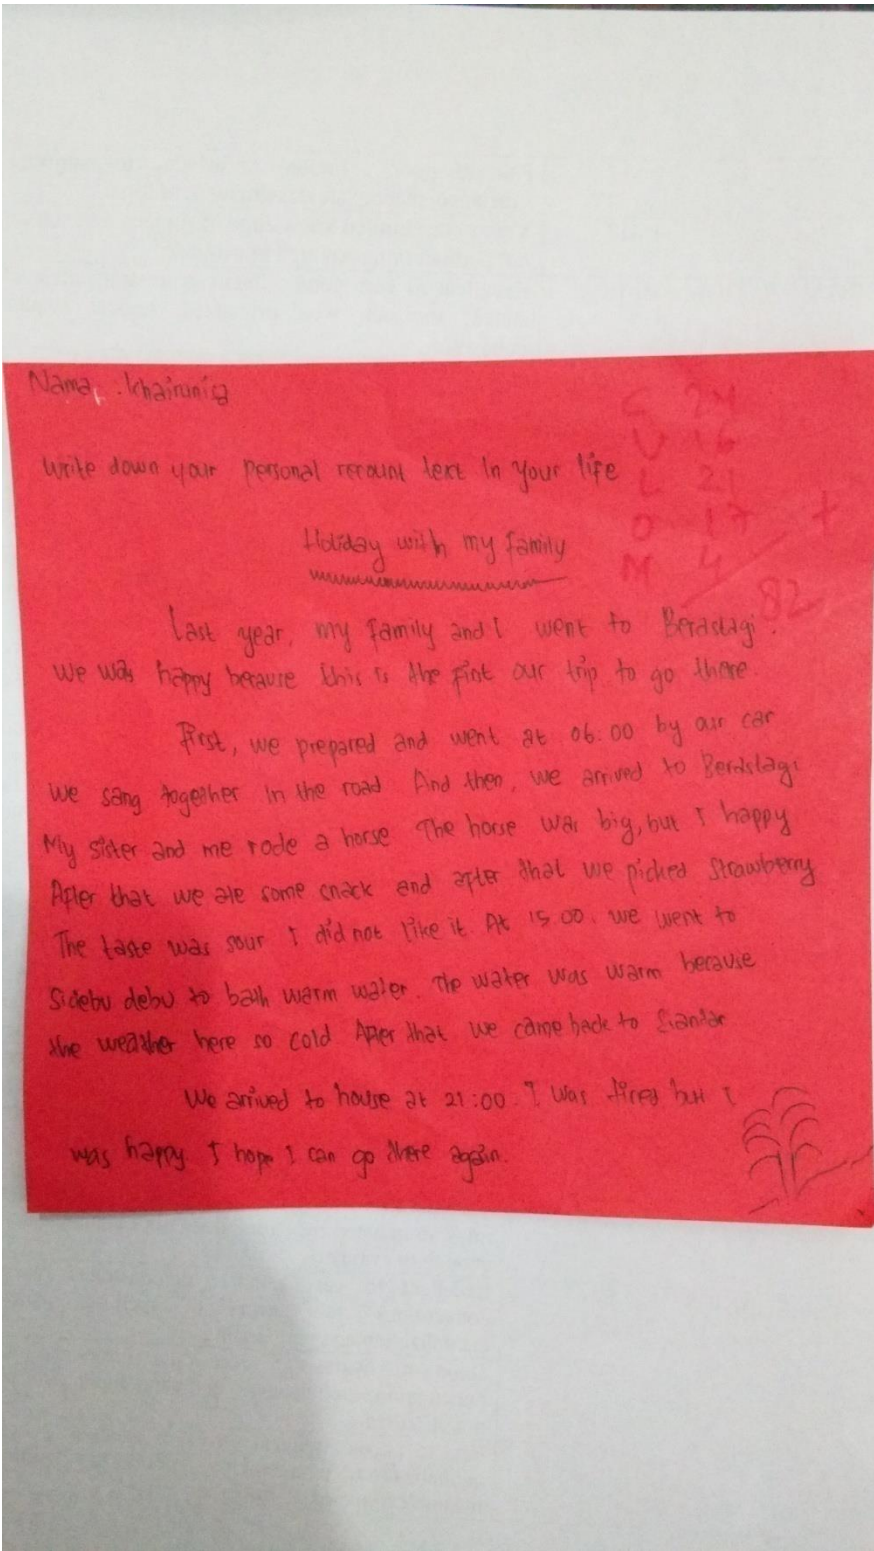 Nama : Khairunisa
C 24
V 16
Write down your personal recount text in your life
L 21
O 17 +
Holiday with my family
M 4
82
Last year, my family and I went to Berastagi.
We was happy because this is the our trip to go there.
First, we prepared and went at 06:00 by our car
we sang together in the road And then, we arrived to Berastagi
My sister and me rode a horse The horse was big, but I happy
After that we ate some cnack and after that we picked strawberry
The taste was sour I did not like it. At 15.00. we went to
Sidebu debu to bath warm water. The water was warm because
the weather here so cold After that we came back to Siantar
We arrived to house at 21:00. I was tired but I
was happy. I hope I can go there again.